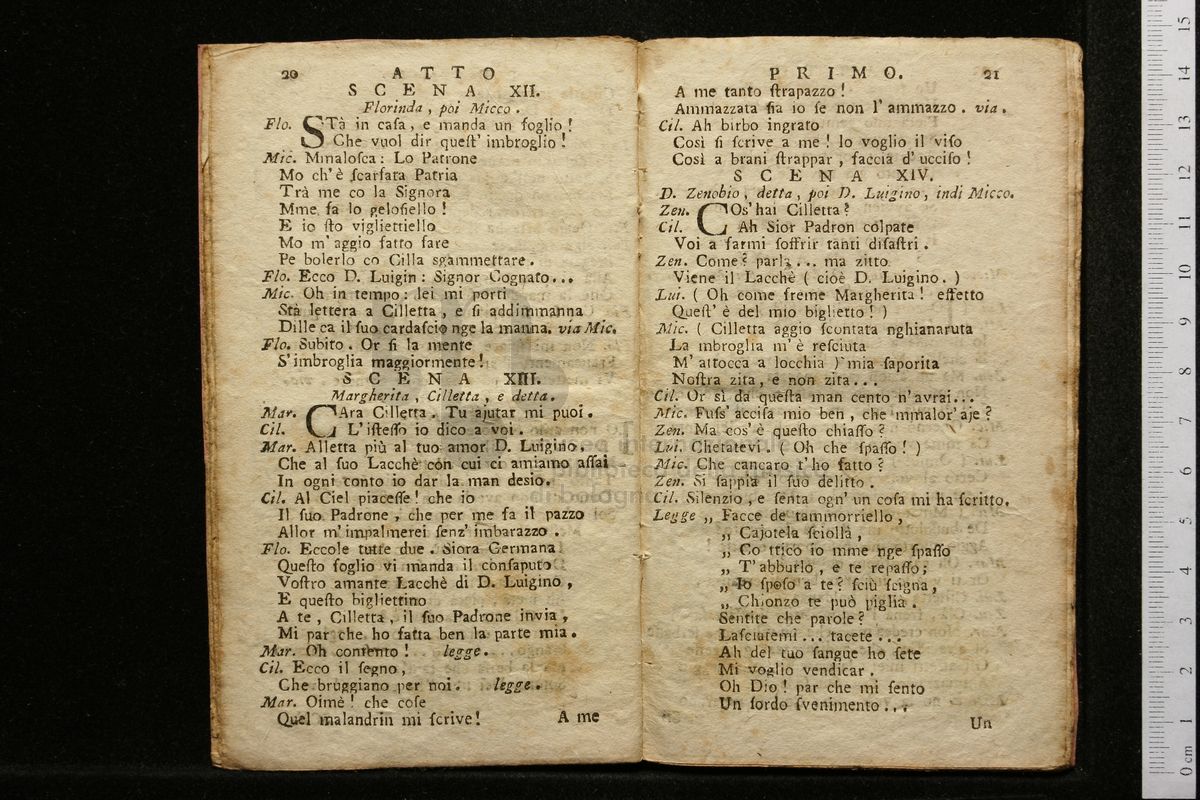 20 ATTO
SCENA XII.
Florinda, poi Micco.
Flo. STà in caſa, e manda un foglio!
Che vuol dir queſt' imbroglio!
Mic. Mmaloſca: Lo Patrone
Mo ch' è ſcarſata Patria
Trà me co la Signora
Mme fa lo geloſiello!
E io ſto vigliettiello
Mo m' aggio fatto fare
Pe bolerlo co Cilla sgammettare.
Flo. Ecco D. Luigin: Signor Cognato...
Mic. Oh in tempo: lei mi porti
Stà lettera a Cilletta, e ſi addimmanna
Dille ca il ſuo cardaſcio nge la manna. via Mic.
Flo. Subito. Or ſi la mente
S' imbroglia maggiormente!
SCENA XIII.
Margherita, Cilletta, e detta.
Mar. CAra Cilletta. Tu ajutar mi puoi.
Cil. L' iſteſſo io dico a voi.
Mar. Alletta più al tuo amor D. Luigino,
Che al ſuo Lacchè con cui ci amiamo aſſai
In ogni conto io dar la man deſio.
Cil. Al Ciel piaceſſe! che io
Il ſuo Padrone, che per me fa il pazzo
Allor m' impalmerei ſenz' imbarazzo.
Flo. Eccole tutte due. Siora Germana
Queſto foglio vi manda il conſaputo
Voſtro amante Lacchè di D. Luigino,
E queſto bigliettino
A te, Cilletta, il ſuo Padrone invia,
Mi par che ho fatta ben la parte mia.
Mar. Oh contento! legge.
Cil. Ecco il ſegno,
Che bruggiano per noi. legge.
Mar. Oimè! che coſe
Quel malandrin mi ſcrive!
A me
PRIMO. 21
A me tanto ſtrapazzo!
Ammazzata ſia io ſe non l' ammazzo. via.
Cil. Ah birbo ingrato
Così ſi ſcrive a me! Io voglio il viſo
Così a brani ſtrappar, faccia d' ucciſo!
SCENA XIV.
D. Zenobio, detta, poi D. Luigino, indi Micco.
Zen. COs' hai Cilletta?
Cil. Ah Sior Padron colpate
Voi a farmi ſoffrir tanti diſaſtri.
Zen. Come? parla... ma zitto
Viene il Lacchè (cioè D. Luigino.)
Lui. (Oh come freme Margherita! effetto
Queſt' è del mio biglietto!)
Mic. (Cilletta aggio ſcontata nghianaruta
La mbroglia m' è reſciuta
M' attocca a locchia) mia ſaporita
Noſtra zita, e non zita...
Cil. Or sì da queſta man cento n' avrai...
Mic. Fuſs' acciſa mio ben, che mmalor' aje?
Zen. Ma cos' è queſto chiaſſo?
Lui. Chetatevi. (Oh che ſpaſſo!)
Mic. Che cancaro t' ho fatto?
Zen. Si ſappia il ſuo delitto.
Cil. Silenzio, e ſenta ogn' un coſa mi ha ſcritto.
Legge „ Facce de tammorriello,
„ Cajotela ſciolla,
„ Co ttico io mme nge ſpaſſo
„ T' abburlo, e te repaſſo;
„ Io ſpoſo a te? ſciù ſcigna,
„ Chionzo te può piglià.
Sentite che parole?
Laſciatemi... tacete...
Ah del tuo ſangue ho ſete
Mi voglio vendicar.
Oh Dio! par che mi ſento
Un ſordo ſvenimento...
Un